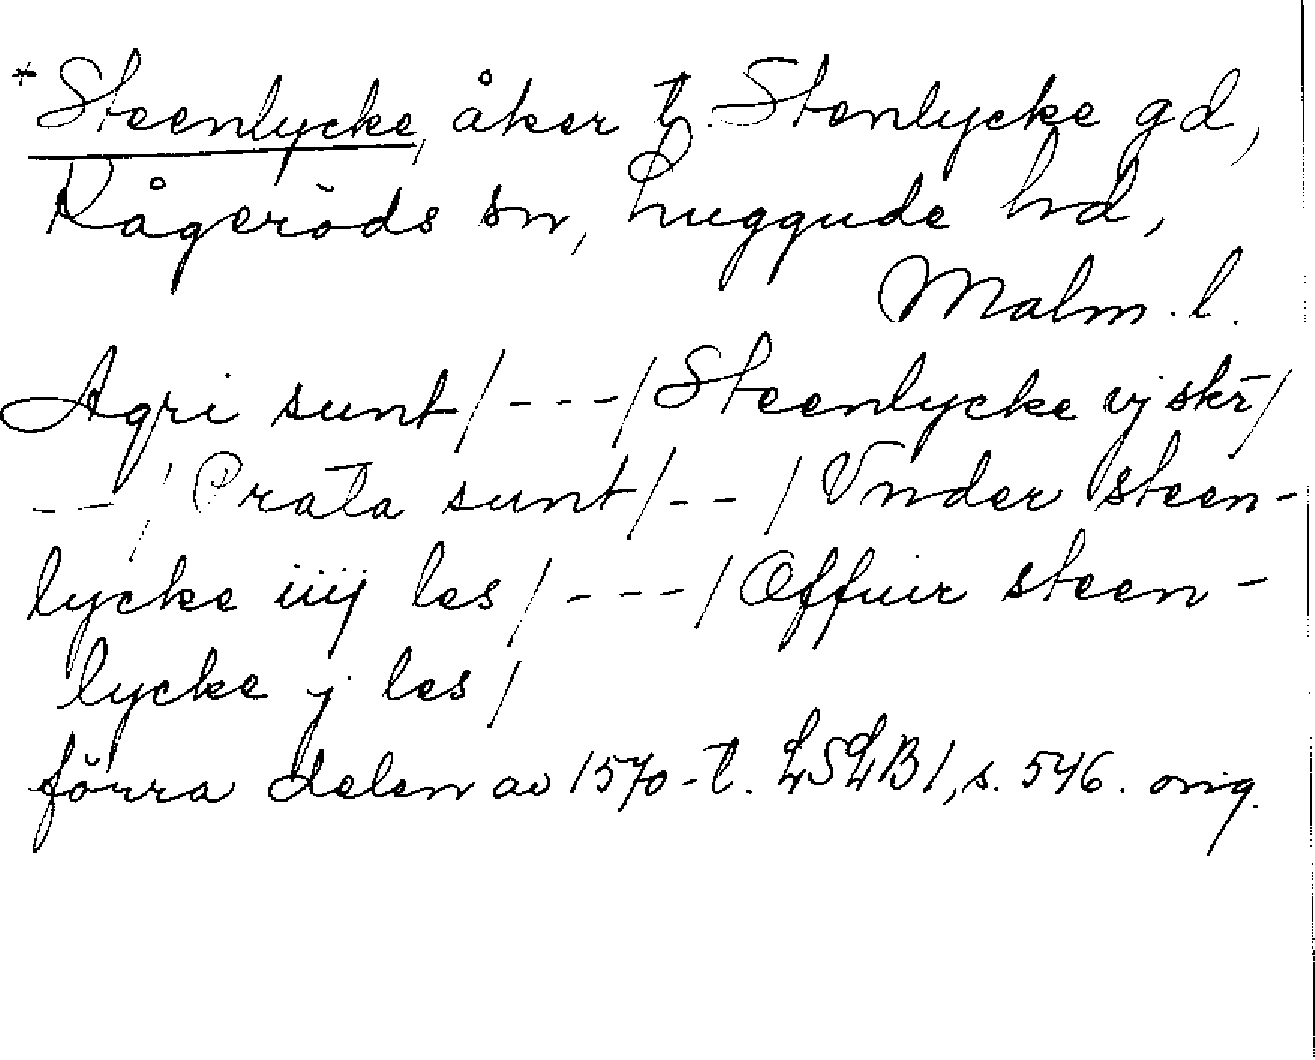 *Steenlycke, åker t. Stenlycke gd,
Kågeröds sn, Luggude hd,
Malm. l.
Agri sunt/---/Steenlycke vj skr̄/
--/Prata sunt/--/Vnder steen-
lycke iiij les/---/Offuir steen-
lycke j les/
förra delen av 1570-t. LSLB1, s. 546. orig.